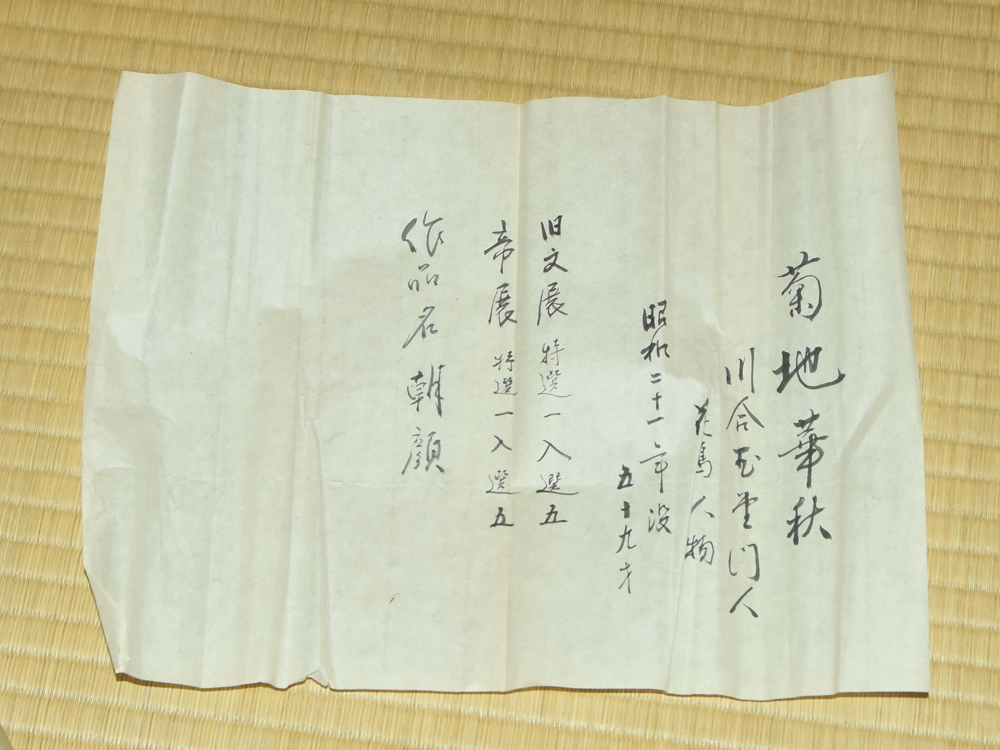 菊地華秋
川合玉堂門人
花鳥人物
昭和二十一年没
五十九才
旧文展 特選一入選五
帝展 特選一入選五
作品名 朝顔